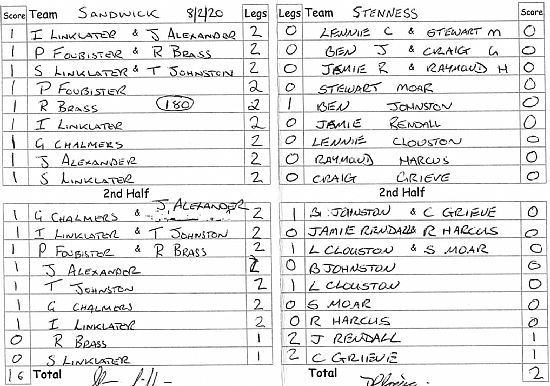 Score Team SANDWICK 8/2/20 Legs Team STENNESS Score
1 I LINKLATER & J ALEXANDER 2 0 LENNIE C & STEWART M 0
1 P FOUBISTER & R BRASS 2 0 BEN J & CRAIG G 0
1 S LINKLATER & T JOHNSTON 2 0 JAMIE R & RAYMOND H 0
1 P FOUBISTER 2 0 STEWART MOAR 0
1 R BRASS 180 2 1 BEN JOHNSTON 0
1 I LINKLATER 2 0 JAMIE RENDALL 0
1 G CHALMERS 2 0 LENNIE CLOUSTON 0
1 J ALEXANDER 2 0 RAYMOND HARCUS 0
1 S LINKLATER 2 0 CRAIG GRIEVE 0
2nd Half 2nd Half
1 G CHALMERS & J. ALEXANDER 2 1 B JOHNSTON & C GRIEVE 0
1 I LINKLATER & T JOHNSTON 2 0 JAMIE RENDALL & R HARCUS 0
1 P FOUBISTER & R BRASS 2 1 L CLOUSTON & S MOAR 0
1 J ALEXANDER 2 0 B JOHNSTON 0
1 T JOHNSTON 2 1 L CLOUSTON 0
1 G CHALMERS 2 0 S MOAR 0
1 I LINKLATER 2 0 R HARCUS 0
0 R BRASS 1 2 J RENDALL 1
0 S LINKLATER 1 2 C GRIEVE 1
16 Total Total 2